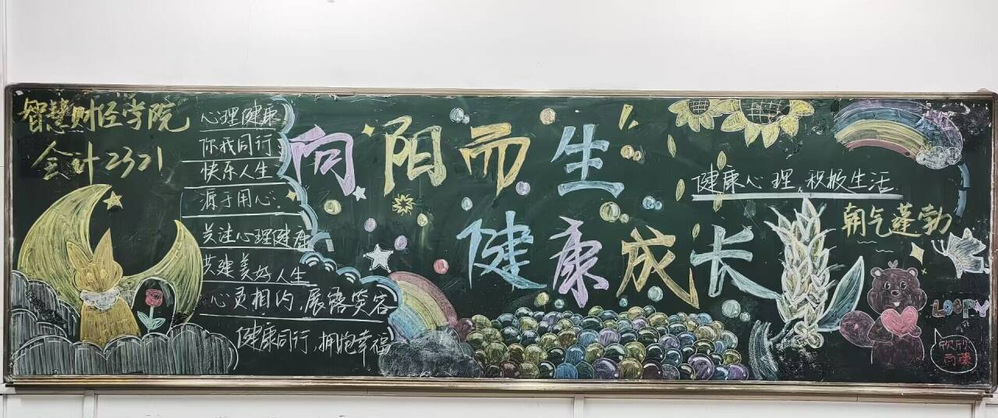 智慧财经学院
会计2321
心理健康
你我同行
快乐人生
源于用心
关注心理健康
共建美好人生
心灵相约,展露笑容
健康同行,拥抱幸福
向阳而生
健康成长
健康心理,积极生活
朝气蓬勃
LOOPY
欣欣
向荣